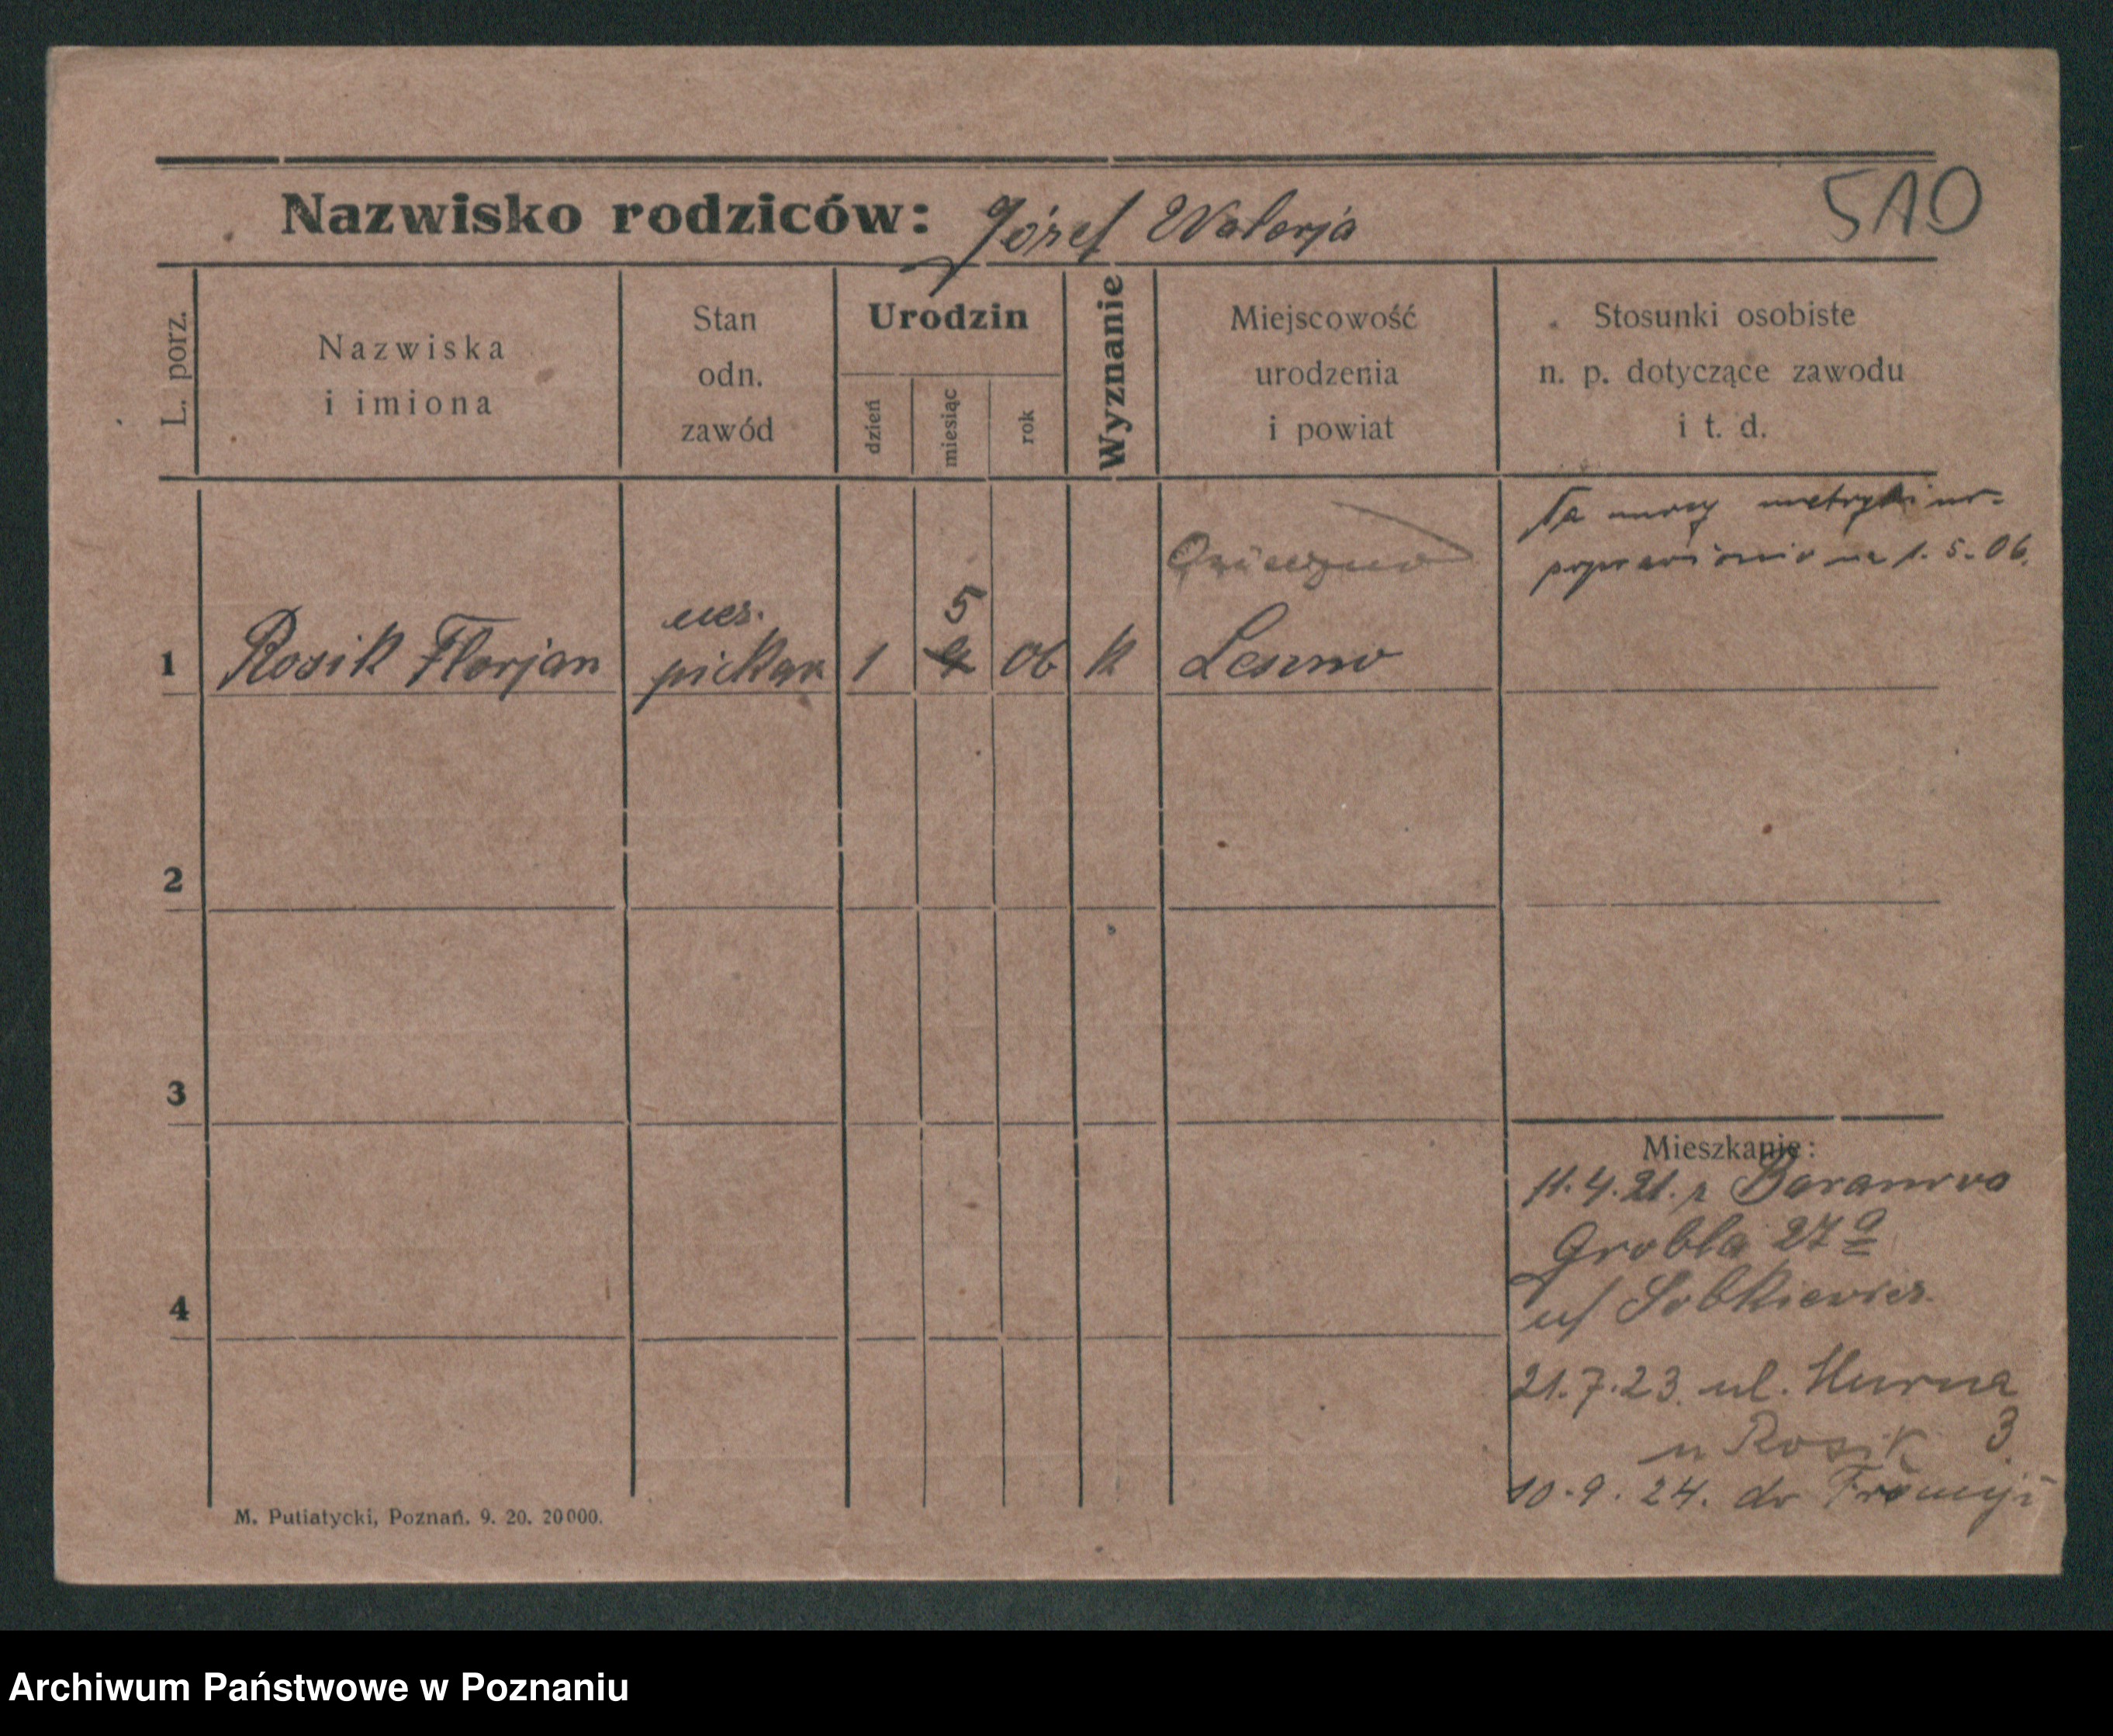 Nazwisko rodziców: Józef Walerja
5AD
L. porz.
Nazwiska
i imiona
Stan
odn.
zawód
Urodzin
dzień
miesiąc
rok
Wyznanie
Miejscowość
urodzenia
i powiat
Stosunki osobiste
n. p. dotyczące zawodu
i t. d.
Na mocy metryki ur.
poprawiono na 1. 5. 06.
5
ucz.
1 Rosik Florjan piekar 1 4 06 k Leszno
2
3
4
Mieszkanie:
11. 4. 21. z Baranowa
Grobla 27a
u/ Sobkiewicz
21. 7. 23. ul. Murna
u Rosik 3.
10. 9. 24. do Francyi
M. Putiatycki, Poznań. 9. 20. 20000.
Archiwum Państwowe w Poznaniu